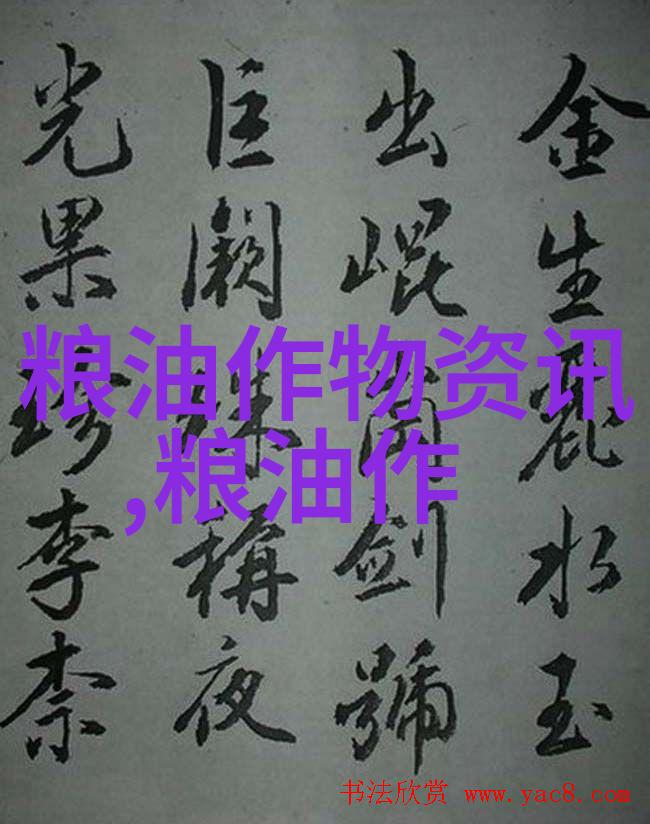 金生麗水玉
出崐崗劍號
巨闕珠稱夜
光果珍李柰
粮油作物资讯
,粮油作
书法欣赏 www.yac8.com